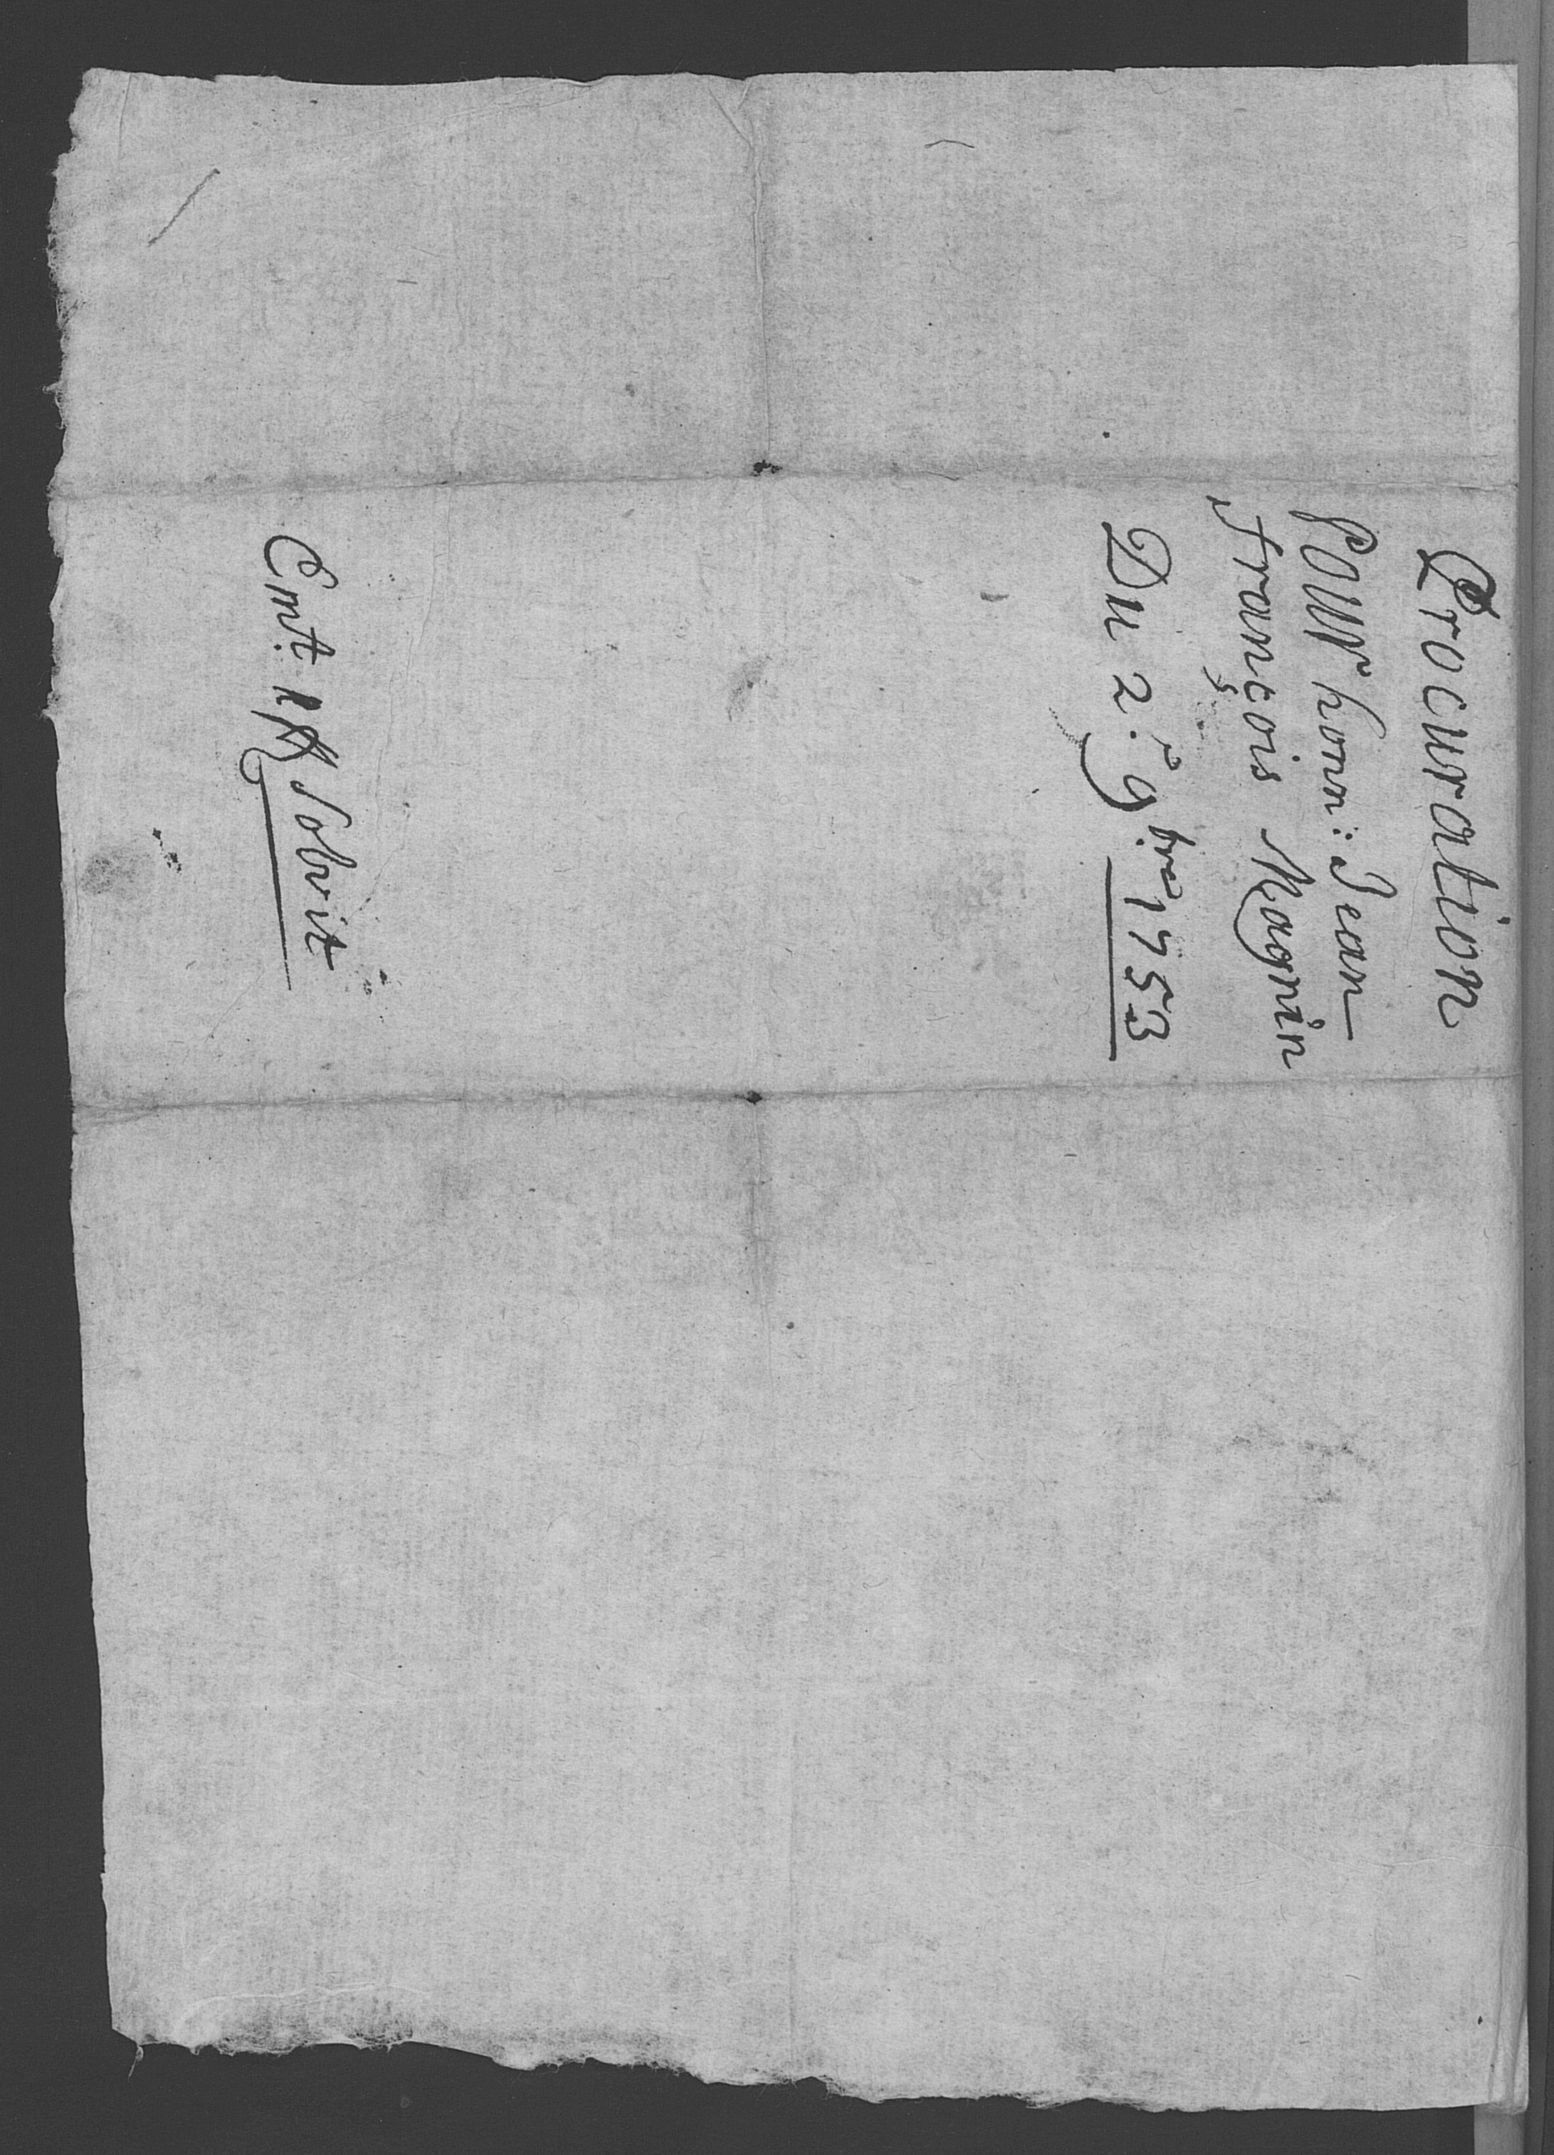 Procuration
pour honn: Jean
François Magnin
Du 2.e 9.bre 1753
Emt. Solvit